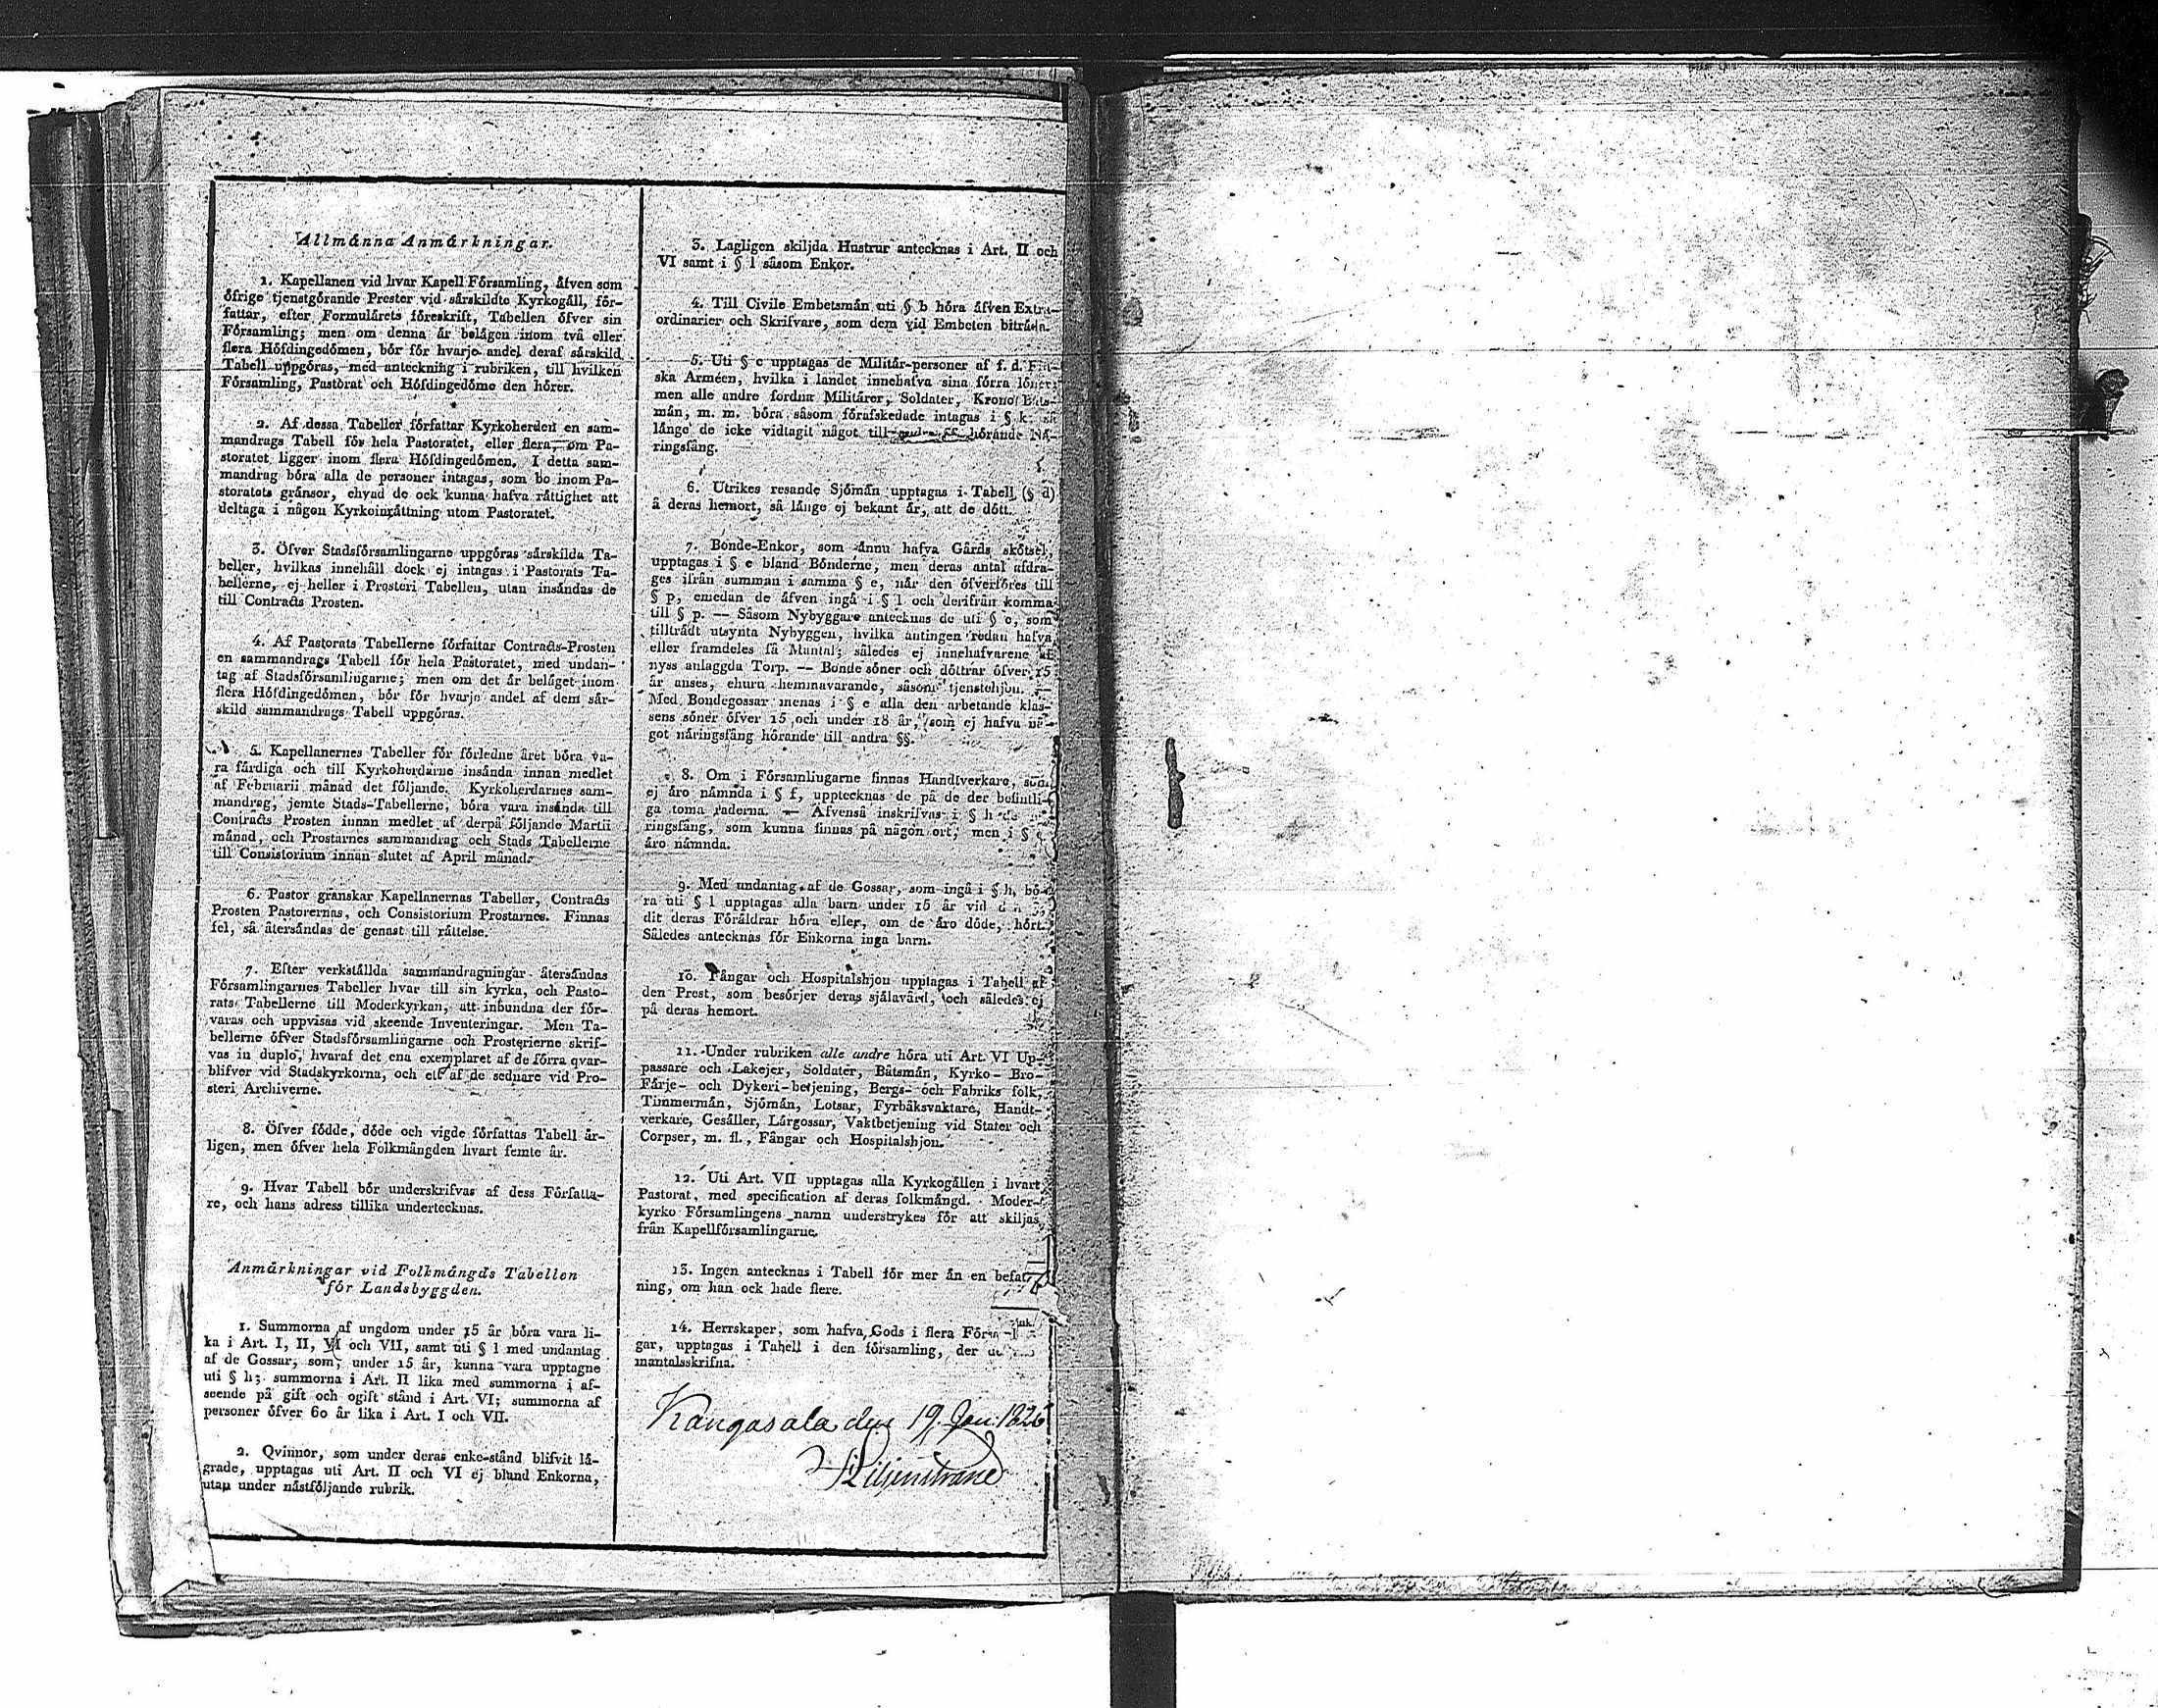 Allmänna Anmärkningar.
1. Kapellanen vid hvar Kapell Församling, äfven som
öfrige tjenstgörande Prester vid särskildte Kyrkogäll, för-
fattar, efter Formulärets föreskrift, Tabellen öfver sin
Församling; men om denna är belägen inom två eller
flera Höfdingedömen, bör för hvarje andel deraf särskild
Tabell uppgöras, med anteckning i rubriken, till hvilken
Församling, Pastorat och Höfdingedöme den hörer.
2. Af dessa Tabeller författar Kyrkoherden en sam-
mandrags Tabell för hela Pastoratet, eller flera, om Pa-
storatet ligger inom flera Höfdingedömen. I detta sam-
mandrag böra alla de personer intagas, som bo inom Pa-
storatets gränsor, ehvad de ock kunna hafva rättighet att
deltaga i någon Kyrkoinrättning utom Pastoratet.
3. Öfver Stadsförsamlingarne uppgöras särskilda Ta-
beller, hvilkas innehåll dock ej intagas i Pastorats Ta-
bellerne, ej heller i Prosteri Tabellen, utan insändas de
till Contracts Prosten.
4. Af Pastorats Tabellerne författar Contracts-Prosten
en sammandrags Tabell för hela Pastoratet, med undan-
tag af Stadsförsamlingarne; men om det är beläget inom
flera Höfdingedömen, bör för hvarje andel af dem sär-
skild sammandrags Tabell uppgöras.
5. Kapellanernes Tabeller för förledne året böra va-
ra färdiga och till Kyrkoherdarne insända innan medlet
af Februarii månad det följande. Kyrkoherdarnes sam-
mandrag, jemte Stads-Tabellerne, böra vara insända till
Contracts Prosten innan medlet af derpå följande Martii
månad, och Prostarnes sammandrag och Stads Tabellerne
till Consistorium innan slutet af April månad.
6. Pastor granskar Kapellanernas Tabeller, Contracts
Prosten Pastorernas, och Consistorium Prostarnes. Finnas
fel, så återsändas de genast till rättelse.
7. Efter verkställda sammandragningar återsändas
Församlingarnes Tabeller hvar till sin kyrka, och Pasto-
rats Tabellerne till Moderkyrkan, att inbundna der för-
varas och uppvisas vid skeende Inventeringar. Men Ta-
bellerne öfver Stadsförsamlingarne och Prosterierne skrif-
vas in duplo, hvaraf det ena exemplaret af de förra qvar-
blifver vid Stadskyrkorna, och ett af de sednare vid Pro-
steri Archiverne.
8. Öfver födde, döde och vigde författas Tabell år-
ligen, men öfver hela Folkmängden hvart femte år.
9. Hvar Tabell bör underskrifvas af dess Författa-
re, och hans adress tillika undertecknas.
Anmärkningar vid Folkmängds Tabellen
för Landsbyggden.
1. Summorna af ungdom under 15 år böra vara li-
ka i Art. I, II, VI och VII, samt uti § l med undantag
af de Gossar, som, under 15 år, kunna vara upptagne
uti § h; summorna i Art. II lika med summorna i af-
seende på gift och ogift stånd i Art. VI; summorna af
personer öfver 60 år lika i Art. I och VII.
2. Qvinnor, som under deras enke-stånd blifvit lä-
grade, upptagas uti Art. II och VI ej bland Enkorna,
utan under nästföljande rubrik.
3. Lagligen skiljda Hustrur antecknas i Art. II och
VI samt i § l såsom Enkor.
4. Till Civile Embetsmän uti § b höra äfven Extra-
ordinarier och Skrifvare, som dem vid Embeten biträda.
5. Uti § c upptagas de Militär-personer af f. d. Fin-
ska Arméen, hvilka i landet innehafva sina förra löner;
men alle andre fordna Militärer, Soldater, Krono Båts-
män, m. m. böra såsom förafskedade intagas i § k så
länge de icke vidtagit något till andra §§ hörande Nä-
ringsfång.
6. Utrikes resande Sjömän upptagas i Tabell (§ d)
å deras hemort, så länge ej bekant är, att de dött.
7. Bonde-Enkor, som ännu hafva Gårds skötsel,
upptagas i § e bland Bönderne, men deras antal afdra-
ges ifrån summan i samma § e, när den öfverföres till
§ p, emedan de äfven ingå i § l och derifrån komma
till § p. — Såsom Nybyggare antecknas de uti § e, som
tillträdt utsynta Nybyggen, hvilka antingen redan hafva
eller framdeles få Mantal; således ej innehafvarene af
nyss anlaggda Torp. — Bonde söner och döttrar öfver 15
år anses, ehuru hemmavarande, såsom tjenstehjon. —
Med Bondegossar menas i § e alla den arbetande klas-
sens söner öfver 15 och under 18 år, som ej hafva nå-
got näringsfång hörande till andra §§.
8. Om i Församlingarne finnas Handtverkare, som
ej äro nämnda i § f, upptecknas de på de der befintli-
ga toma raderna. — Äfvenså inskrifvas i § h de
ringsfång, som kunna finnas på någon ort, men i §
äro nämnda.
9. Med undantag af de Gossar, som ingå i § h, bö-
ra uti § l upptagas alla barn under 15 år vid
dit deras Föräldrar höra eller, om de äro döde, hört.
Således antecknas för Enkorna inga barn.
10. Fångar och Hospitalshjon upptagas i Tabell af
den Prest, som besörjer deras själavård, och således ej
på deras hemort.
11. Under rubriken alle andre höra uti Art. VI Up-
passare och Lakejer, Soldater, Båtsmän, Kyrko- Bro-
Färje- och Dykeri-betjening, Bergs- och Fabriks folk,
Timmermän, Sjömän, Lotsar, Fyrbåksvaktare, Handt-
verkare, Gesäller, Lärgossar, Vaktbetjening vid Stater och
Corpser, m. fl., Fångar och Hospitalshjon.
12. Uti Art. VII upptagas alla Kyrkogällen i hvart
Pastorat, med specification af deras folkmängd. Moder-
kyrko Församlingens namn understrykes för att skiljas
från Kapellförsamlingarne.
13. Ingen antecknas i Tabell för mer än en befat-
ning, om han ock hade flere.
14. Herrskaper, som hafva Gods i flera
gar, upptagas i Tabell i den församling, der
mantalsskrifna.
Kangasala den 19. Jan. 1826
Liljenstrand